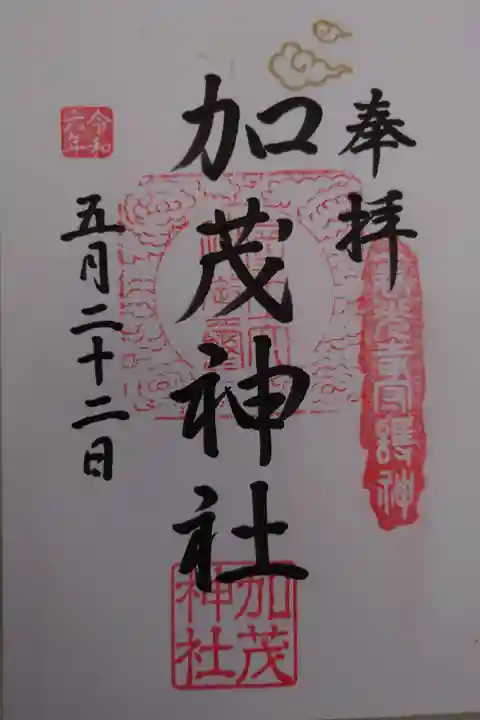 奉拝
加茂神社
加茂
神社
令和
六年
五月二十二日